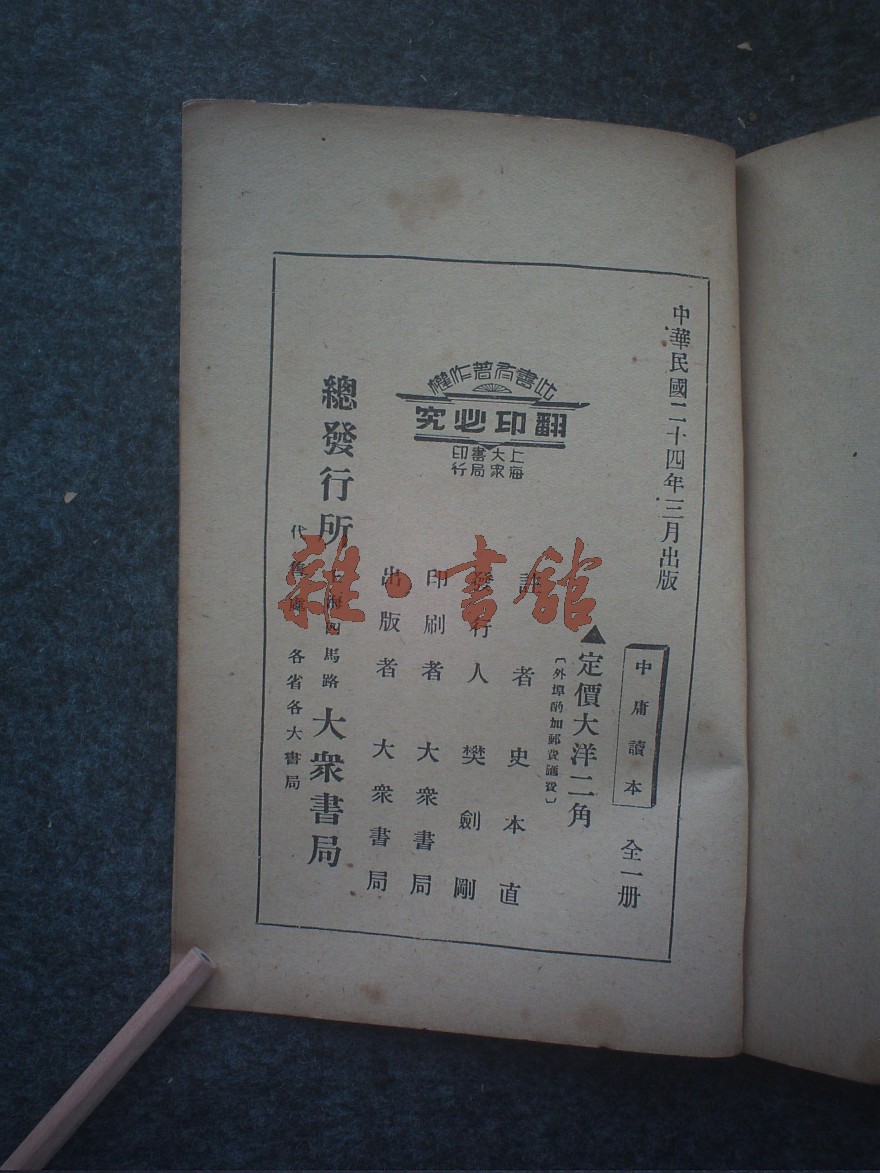 中華民國二十四年三月出版
中庸讀本
全一册
▲定價大洋二角
〔外埠酌加郵費匯費〕
此書有著作權
翻印必究
上海
大眾
書局
印行
註者史本直
發行人樊劍剛
印刷者大衆書局
出版者大衆書局
總發行所
上海四馬路
大衆書局
代售處
各省各大書局
雜·書館